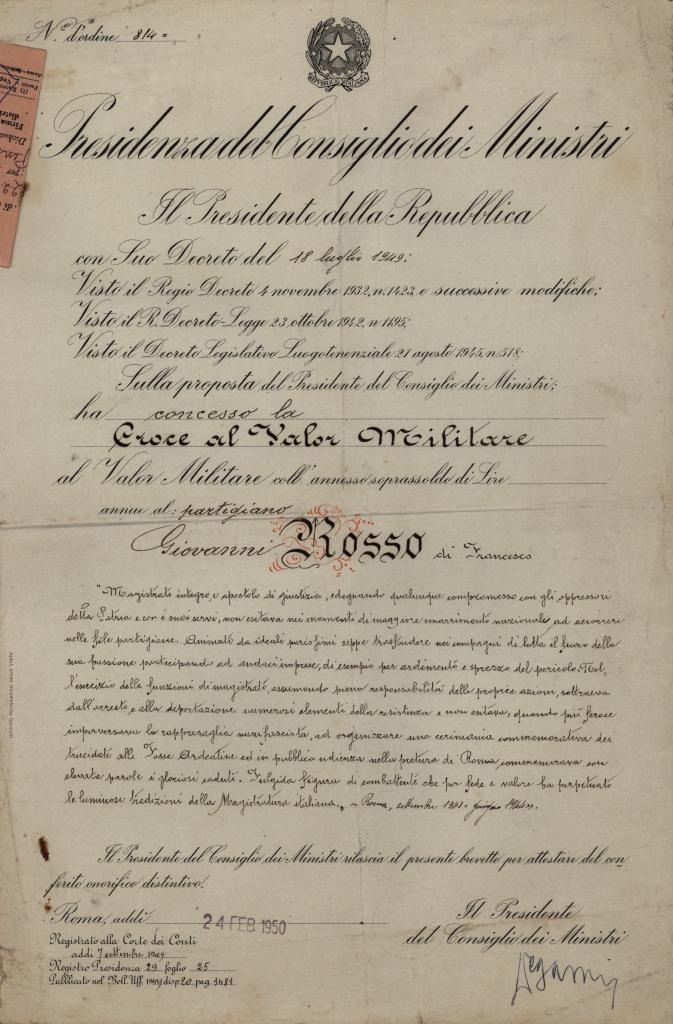 N.º d'ordine 814=
REPVBBLICA ITALIANA
Presidenza del Consiglio dei Ministri
Il Presidente della Repubblica
con Suo Decreto del 18 luglio 1949;
Visto il Regio Decreto 4 novembre 1932, n. 1423 e successive modifiche;
Visto il R. Decreto-Legge 23 ottobre 1942, n. 1195;
Visto il Decreto Legislativo Luogotenenziale 21 agosto 1945, n. 518;
Sulla proposta del Presidente del Consiglio dei Ministri;
ha concesso la
Croce al Valor Militare
al Valor Militare coll'annesso soprassoldo di Lire
annue al: partigiano
Giovanni Rosso di Francesco
"Magistrato integro, e apostolo di giustizia, sdegnando qualunque compromesso con gli oppressori
della Patria e con i suoi servi, non esitava nei momenti di maggiore smarrimento nazionale ad accorrere
nelle file partigiane. Animato da ideali purissimi seppe trasfondere nei compagni di lotta il fuoco della
sua passione partecipando ad audaci imprese, di esempio per ardimento e sprezzo del pericolo. Nel-
l'esercizio delle funzioni di magistrato, assumendo piena responsabilità delle proprie azioni, sottraeva
dall'arresto e alla deportazione numerosi elementi della resistenza e non esitava, quando più feroce
imperversava la rappresaglia nazifascista, ad organizzare una cerimonia commemorativa dei
trucidati alle Fosse Ardeatine ed in pubblica udienza nella pretura di Roma commemorava con
elevate parole i gloriosi caduti. Fulgida figura di combattente che per fede e valore ha perpetuato
le luminose tradizioni della Magistratura italiana." = Roma, settembre 1943 - giugno 1944=.
Il Presidente del Consiglio dei Ministri rilascia il presente brevetto per attestare del con-
ferito onorifico distintivo.
Roma, addì 24 FEB 1950
Il Presidente
del Consiglio dei Ministri
Registrato alla Corte dei Conti
addì 7 settembre 1949
Registro Presidenza 29 foglio 25
Pubblicato nel Boll. Uff. 1949 disp. 20 pag. 3481
Degasperi